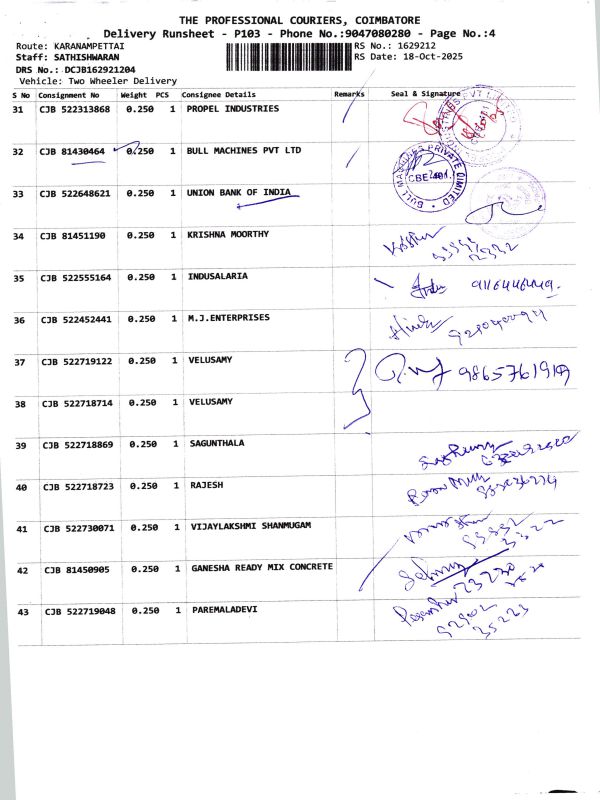 THE PROFESSIONAL COURIERS, COIMBATORE
Delivery Runsheet - P103 - Phone No.:9047080280 - Page No.:4
Route: KARANAMPETTAI RS No.: 1629212
Staff: SATHISHWARAN RS Date: 18-Oct-2025
DRS No.: DCJB162921204
Vehicle: Two Wheeler Delivery
S No Consignment No Weight PCS Consignee Details Remarks Seal & Signature
31 CJB 522313868 0.250 1 PROPEL INDUSTRIES
32 CJB 81430464 0.250 1 BULL MACHINES PVT LTD
BULL MACHINES PRIVATE LIMITED
33 CJB 522648621 0.250 1 UNION BANK OF INDIA
34 CJB 81451190 0.250 1 KRISHNA MOORTHY
35 CJB 522555164 0.250 1 INDUSALARIA
36 CJB 522452441 0.250 1 M.J.ENTERPRISES
37 CJB 522719122 0.250 1 VELUSAMY
38 CJB 522718714 0.250 1 VELUSAMY
39 CJB 522718869 0.250 1 SAGUNTHALA
40 CJB 522718723 0.250 1 RAJESH
41 CJB 522730071 0.250 1 VIJAYLAKSHMI SHANMUGAM
42 CJB 81450905 0.250 1 GANESHA READY MIX CONCRETE
43 CJB 522719048 0.250 1 PAREMALADEVI